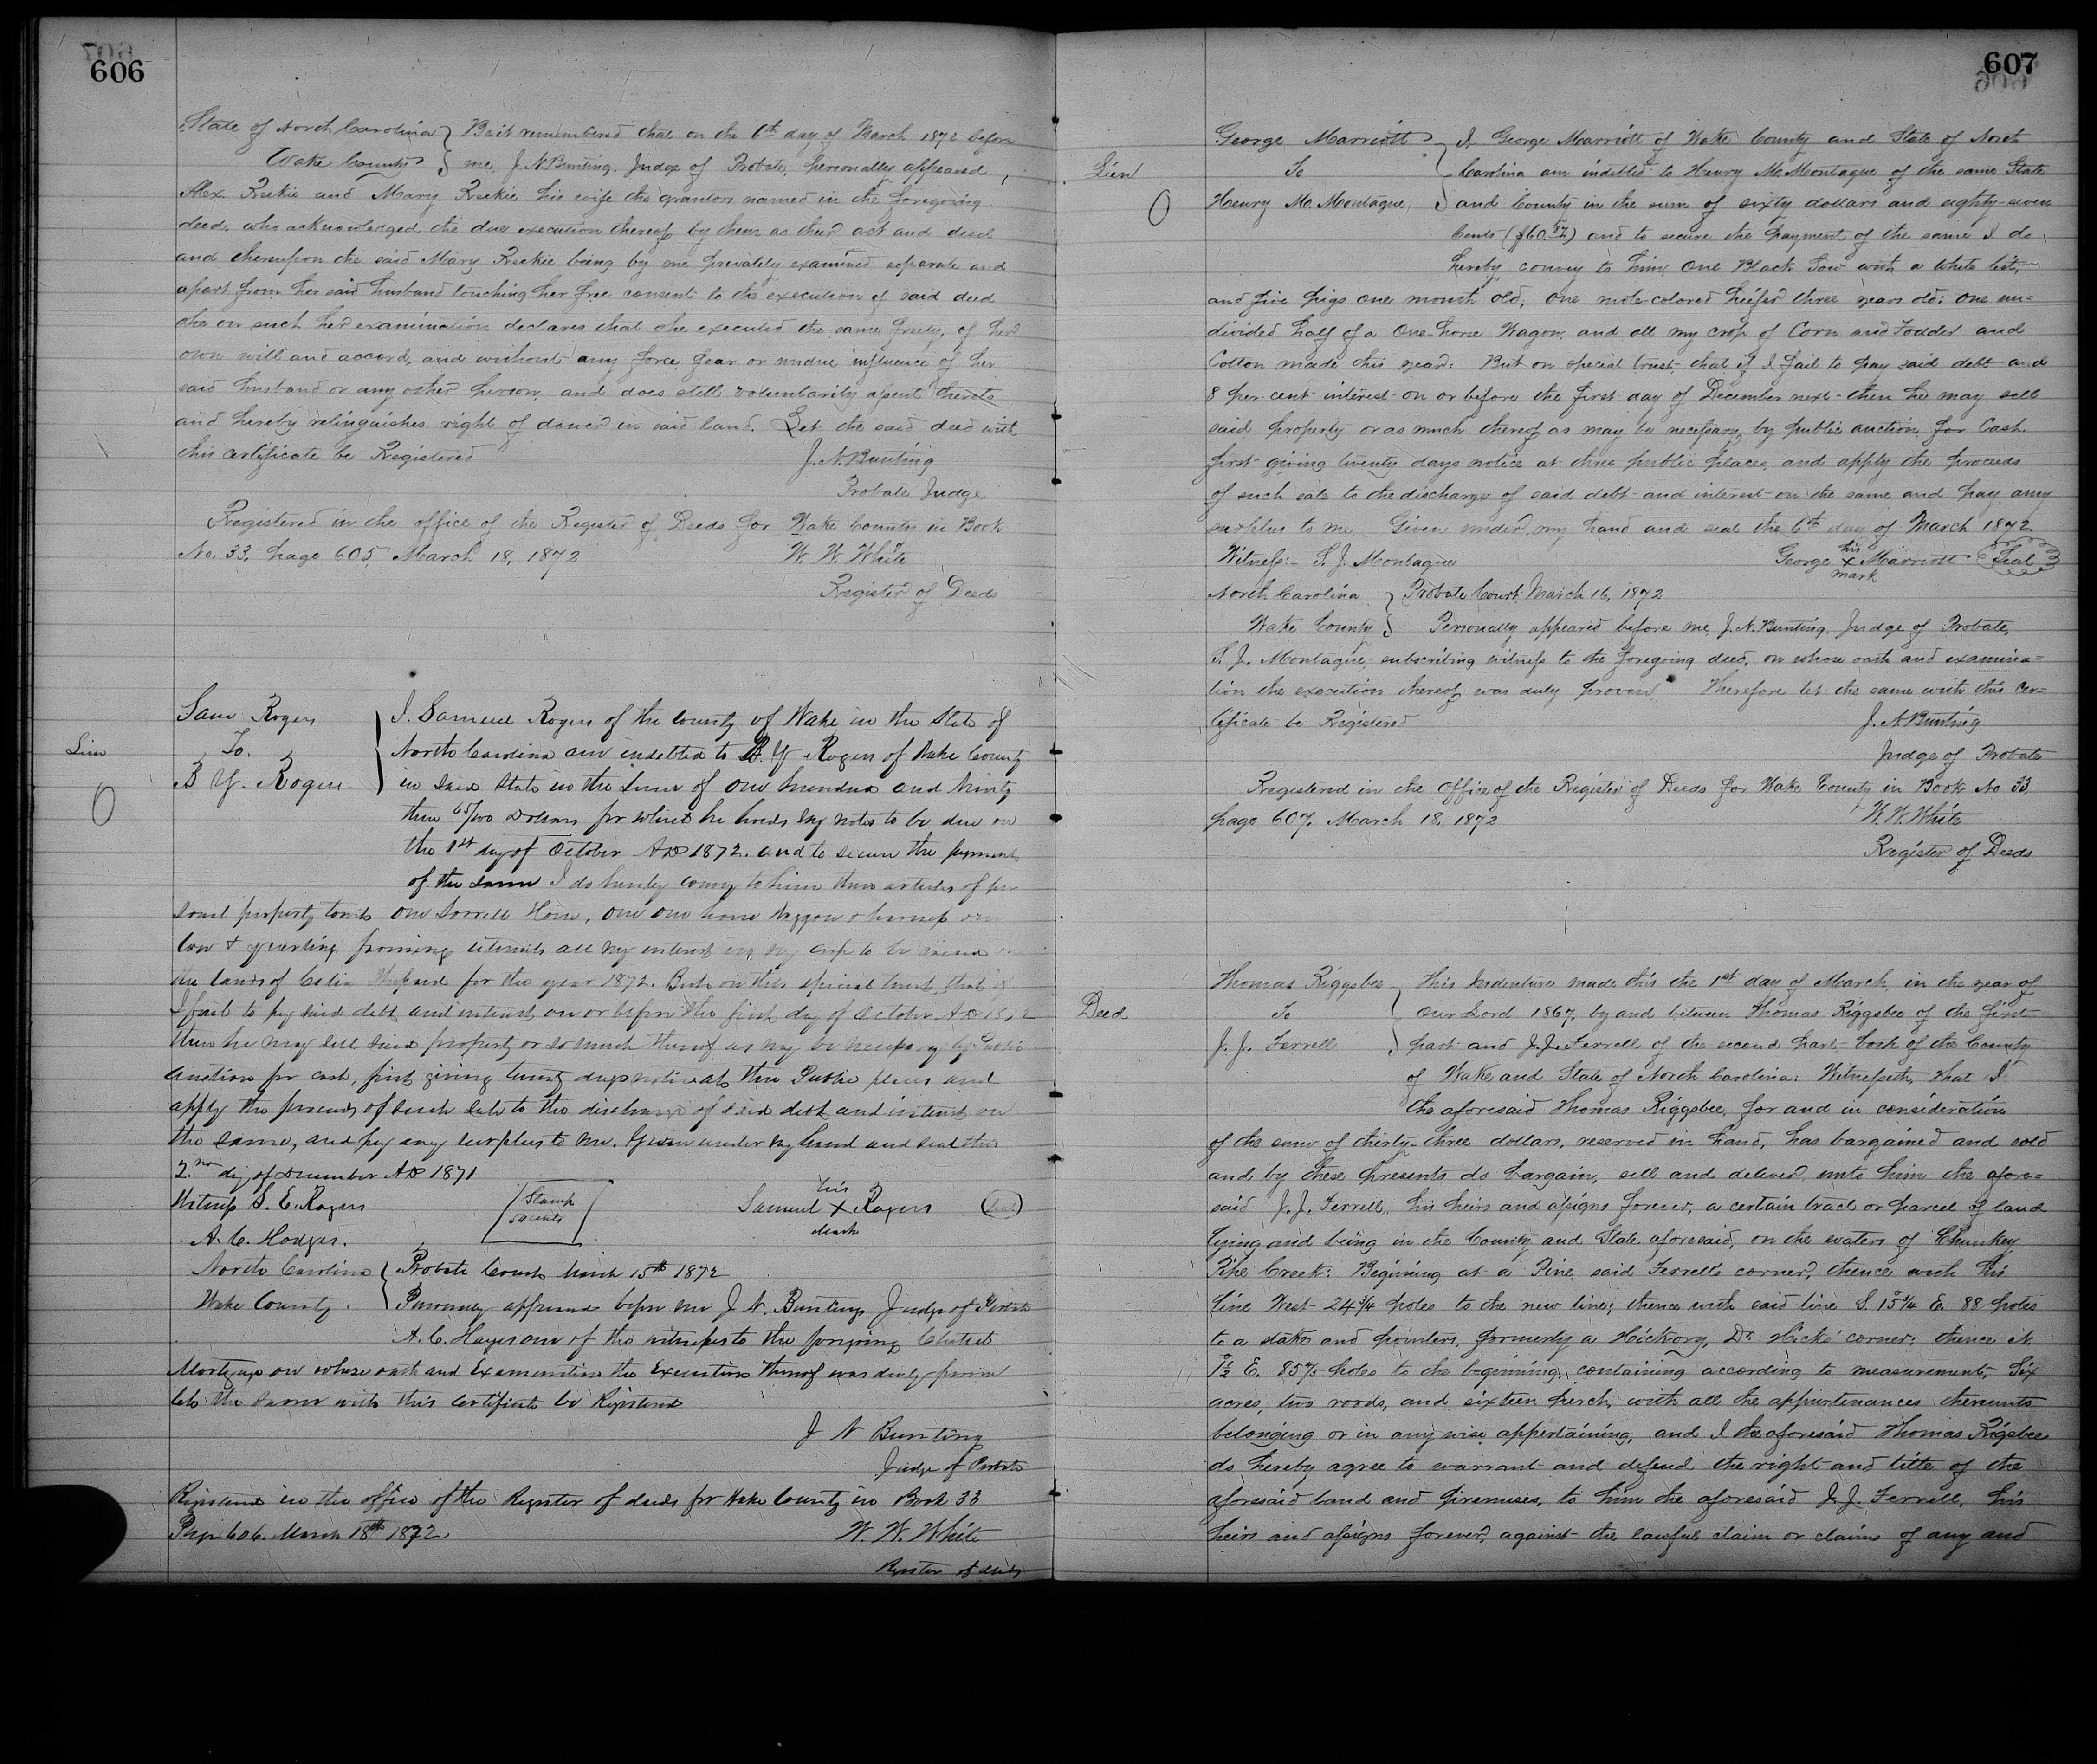 606
State of North Carolina } Be it remembered that on the 6th day of March 1872 before
Wake County } me, J. N. Bunting, Judge of Probate, personally appeared,
Alex. Reekie and Mary Reekie his wife the grantors named in the foregoing
deed, who acknowledged the due execution thereof by them as their act and deed
and thereupon the said Mary Reekie being by me privately examined separate and
apart from her said husband touching her free consent to the execution of said deed
she on such her examination declares that she executed the same freely, of her
own will and accord, and without any force, fear or undue influence of her
said husband or any other person, and does still voluntarily assent thereto
and hereby relinquishes right of dower in said land. Let the said deed with
this certificate be Registered
J. N. Bunting
Probate Judge
Registered in the office of the Register of Deeds for Wake County in Book
No. 33, page 605, March 18, 1872
W. W. White
Register of Deeds
Lien
Sam Rogers } I. Samuel Rogers of the County of Wake in the State of
To. } North Carolina am indebted to B. Y. Rogers of Wake County
B Y. Rogers } in said State in the Sum of One hundred and ninty
three 65/100 Dollars for which he holds my notes to be due on
the 1st day of October AD 1872. and to secure the payment
of the same I do hereby convey to him these articles of per
sonal property towit One Sorrell Horse, One one horse Waggon & harness one
Cow & yearling farming utensils all my interest in my crop to be raised on
the lands of Celia for the year 1872. But on this special trust, that if
I fail to pay said debt and interest on or before the first day of October AD 1872
then he may sell said property or so much thereof as may be necessary by Public
auction for cash, first giving twenty days notice at three Public places and
apply the proceeds of such sale to the discharge of said debt and interest on
the same, and pay any surplus to me. Given under my hand and seal this
2nd day of December AD 1871
Witness S. E. Rogers
[Stamp
5 cents]
his
Samuel X Rogers (Seal)
mark
A. C. Hodges.
North Carolina { Probate Court March 15th 1872
Wake County. { Personally appeared before me J. N. Buntings Judge of Probate
A. C. Hayes one of the witnesses to the forgoing Chattel
Mortgage on whose oath and Examination the Execution thereof was duly proven
lets the same with this certificate be Registered
J N Bunting
Judge of Probate
Registered in the office of the Register of deeds for Wake County in Book 33
Page 606. March 18th 1872.
W. W. White
Register of deeds
607
Lien
George Marriott } I George Marriott of Wake County and State of North
To { Carolina am indebted to Henry M. Montague of the same State
Henry M. Montague, } and County in the sum of sixty dollars and eighty-seven
Cents ($60.87) and to secure the payment of the same I do
hereby convey to him, One Black Sow with a white list,
and five pigs one month old; one mole-colored heifer three years old; one un=
divided half of a One-horse Wagon, and all my crop of Corn and Fodder and
Cotton made this year: But on special trust, that if I fail to pay said debt and
8 per cent interest on or before the first day of December next then he may sell
said property or as much thereof as may be necessary, by public auction, for Cash
first giving twenty days notice at three public places, and apply the proceeds
of such sale to the discharge of said debt and interest on the same and pay any
surplus to me. Given under my hand and seal the 6th day of March 1872.
Witness:- S. J. Montague
his
George X Marriott (Seal)
mark
North Carolina } Probate Court, March 16, 1872
Wake County } Personally appeared before me, J. N. Bunting, Judge of Probate,
S. J. Montague, subscribing witness to the foregoing deed, on whose oath and examina=
tion the execution thereof was duly proven Therefore let the same with this cer=
tificate be Registered
J. N. Bunting
Judge of Probate
Registered in the Office of the Register of Deeds for Wake County in Book No 33,
page 607. March 18, 1872
W. W. White
Register of Deeds
Deed
Thomas Riggsbee } This Indenture made this the 1st day of March, in the year of
To { Our Lord 1867, by and between Thomas Riggsbee of the first
J. J. Ferrell } part and J. J. Ferrell of the second part, both of the County
of Wake and State of North Carolina: Witnesseth, that I
the aforesaid Thomas Riggsbee, for and in consideration
of the sum of thirty-three dollars, reserved in hand, has bargained and sold
and by these presents do bargain, sell and deliver unto him the afore=
said J. J. Ferrell, his heirs and assigns forever, a certain tract or parcel of land
lying and being in the County and State aforesaid, on the waters of Chunkey
Pipe Creek: Begining at a Pine, said Ferrell's corner, thence with his
line West 24 3/4 poles to the new line; thence with said line S. 15° 3/4 E. 88 poles
to a stake and pointers, formerly a Hickory, Dr Hicks' corner: thence N.
1°½ E. 85 4/5 poles to the beginning, containing according to measurement, Six
acres, two roods, and sixteen perch, with all the appurtenances thereunto
belonging or in any wise appertaining, and I the aforesaid Thomas Rigsbee
do hereby agree to warrant and defend the right and title of the
aforesaid land and premises, to him the aforesaid J. J. Ferrell, his
heirs and assigns forever, against the lawful claim or claims of any and